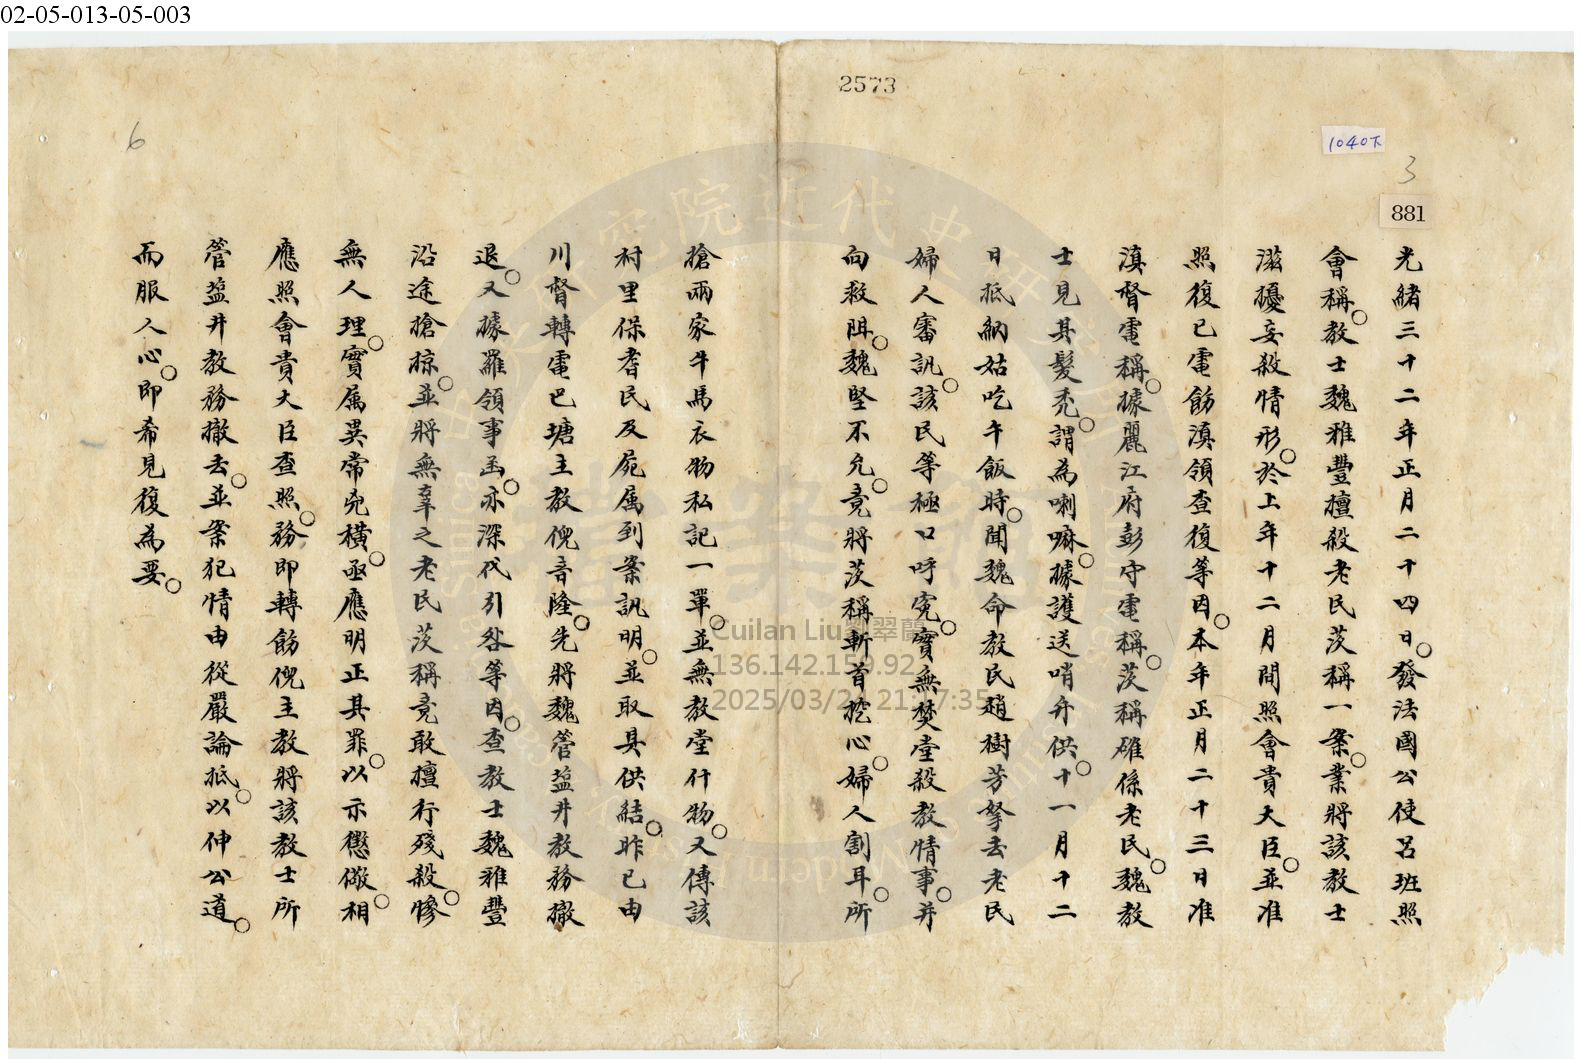 02-05-013-05-003
2573
1040下
3
881
6
光緒三十二年正月二十四日。發法國公使呂班照
會稱。教士魏雅豐擅殺老民茨稱一案。業將該教士
滋擾妄殺情形。於上年十二月間照會貴大臣。並准
照復已電飭滇領查復等因。本年正月二十三日准
滇督電稱。據麗江府彭守電稱。茨稱確係老民。魏教
士見其髮禿。謂為喇嘛。據護送哨弁供。十一月十二
日抵納姑吃午飯時。聞魏命教民趙樹芳拏去老民
婦人審訊。該民等極口呼冤。實無焚堂殺教情事。弁
向救阻。魏堅不允。竟將茨稱斬首挖心。婦人割耳。所
搶兩家牛馬衣物私記一單。並無教堂什物。又傳該
村里保耆民及屍属到案訊明。並取具供結。昨已由
川督轉電巴塘主教倪音隆。先將魏管盐井教務撤
退。又據羅領事函。亦深代引咎等因。查教士魏雅豐
沿途搶掠。並將無辜之老民茨稱竟敢擅行殘殺。慘
無人理。實属異常兇橫。亟應明正其罪。以示懲儆。相
應照會貴大臣查照。務即轉飭倪主教將該教士所
管盐井教務撤去。並案犯情由從嚴論抵。以伸公道。
而服人心。即希見復為要。
Cuilan Liu劉翠蘭
136.142.159.92
2025/03/24 21:17:35